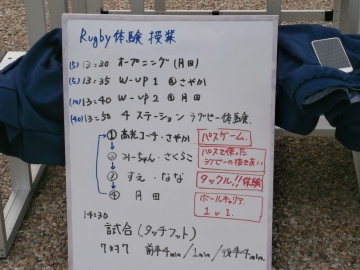 Rugby体験 授業
(5) 13:30 オープニング(月田)
(5) 13:35 W-up1 さやか
(10) 13:40 W-up2 月田
(40) 13:50 4ステーション ラグビー体験.
① コーチ・さやか パスゲーム.
② みーちゃん・さくらこ パスを使った
③ すえ・なな タックル!!体験
④ 月田 ボールキャリア.
1 v 1.
14:30
試合(タッチフット)
7 v 7 前半4min/1min/後半4min.